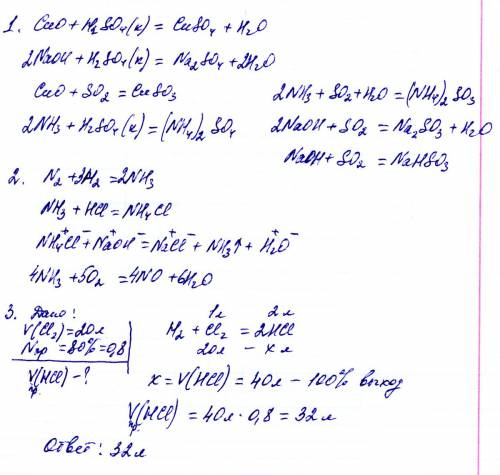 1. CuO + H₂SO₄(к) = CuSO₄ + H₂O
2NaOH + H₂SO₄(к) = Na₂SO₄ + 2H₂O
CuO + SO₂ = CuSO₃
2NH₃ + SO₂ + H₂O = (NH₄)₂SO₃
2NH₃ + H₂SO₄(к) = (NH₄)₂SO₄
2NaOH + SO₂ = Na₂SO₃ + H₂O
NaOH + SO₂ = NaHSO₃
2. N₂ + 3H₂ = 2NH₃
NH₃ + HCl = NH₄Cl
NH₄⁺Cl⁻ + Na⁺OH⁻ = Na⁺Cl⁻ + NH₃↑ + H₂⁺O⁻
4NH₃ + 5O₂ = 4NO + 6H₂O
3. Дано:
V(Cl₂) = 20л
ηпр = 80% = 0,8
V(HCl)пр. - ?
1л 2л
H₂ + Cl₂ = 2HCl
20л – х л
x = V(HCl) = 40л – 100% выход
V(HCl)пр. = 40л · 0,8 = 32л
Ответ: 32л